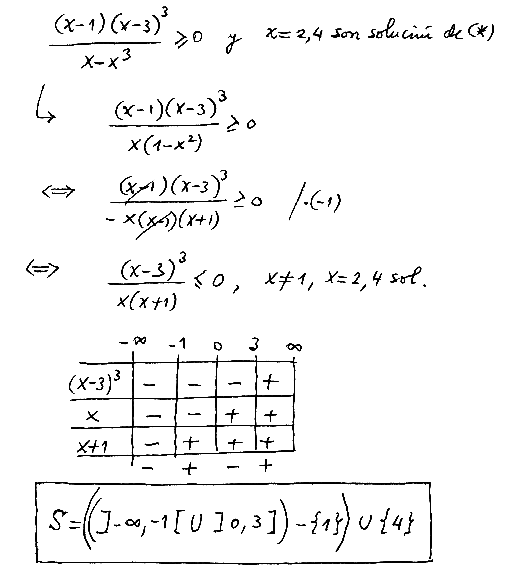 (x-1)(x-3)³/(x-x³) ≥ 0 y x=2,4 son solución de (*)
↳ (x-1)(x-3)³/(x(1-x²)) ≥ 0
⟺ (x-1)(x-3)³/(-x(x-1)(x+1)) ≥ 0 /·(-1)
⟺ (x-3)³/(x(x+1)) ≤ 0, x≠1, x=2,4 sol.
-∞ -1 0 3 ∞
(x-3)³ - - - +
x - - + +
x+1 - + + +
- + - +
S=((]-∞,-1[ U ]0,3])-{1}) U {4}